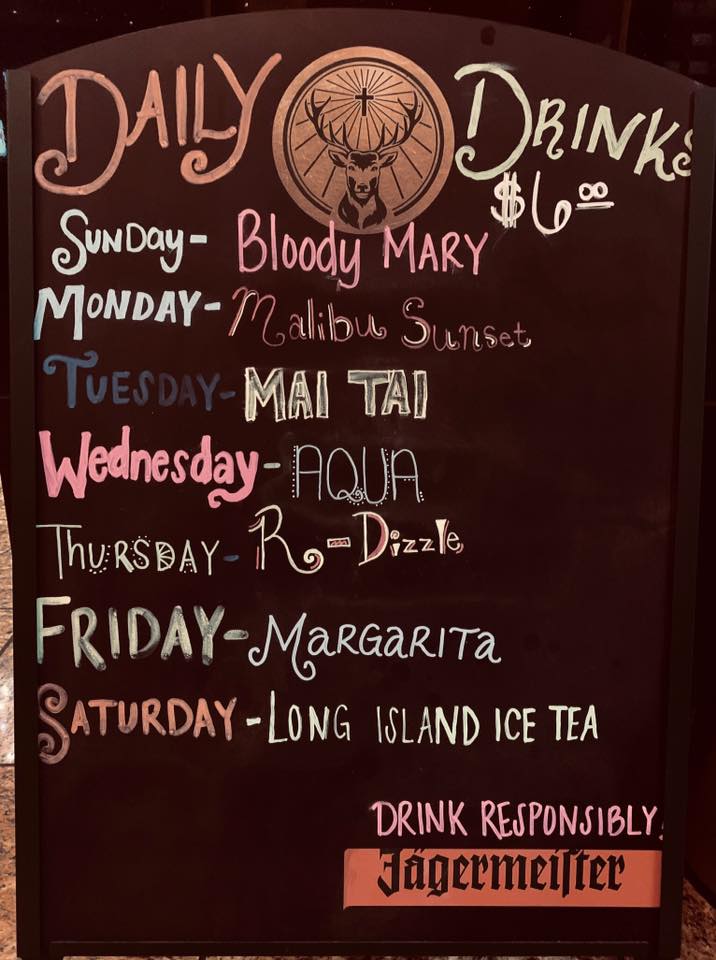 DAILY DRINKS
$6.00
SUNDay- Bloody MARY
MONDAY- Malibu Sunset
TUESDAY- MAI TAI
Wednesday- AQUA
THURSDAY- R-Dizzle
FRIDAY- MARGARITA
SATURDAY- LONG ISLAND ICE TEA
DRINK RESPONSIBLY!
Jägermeiſter